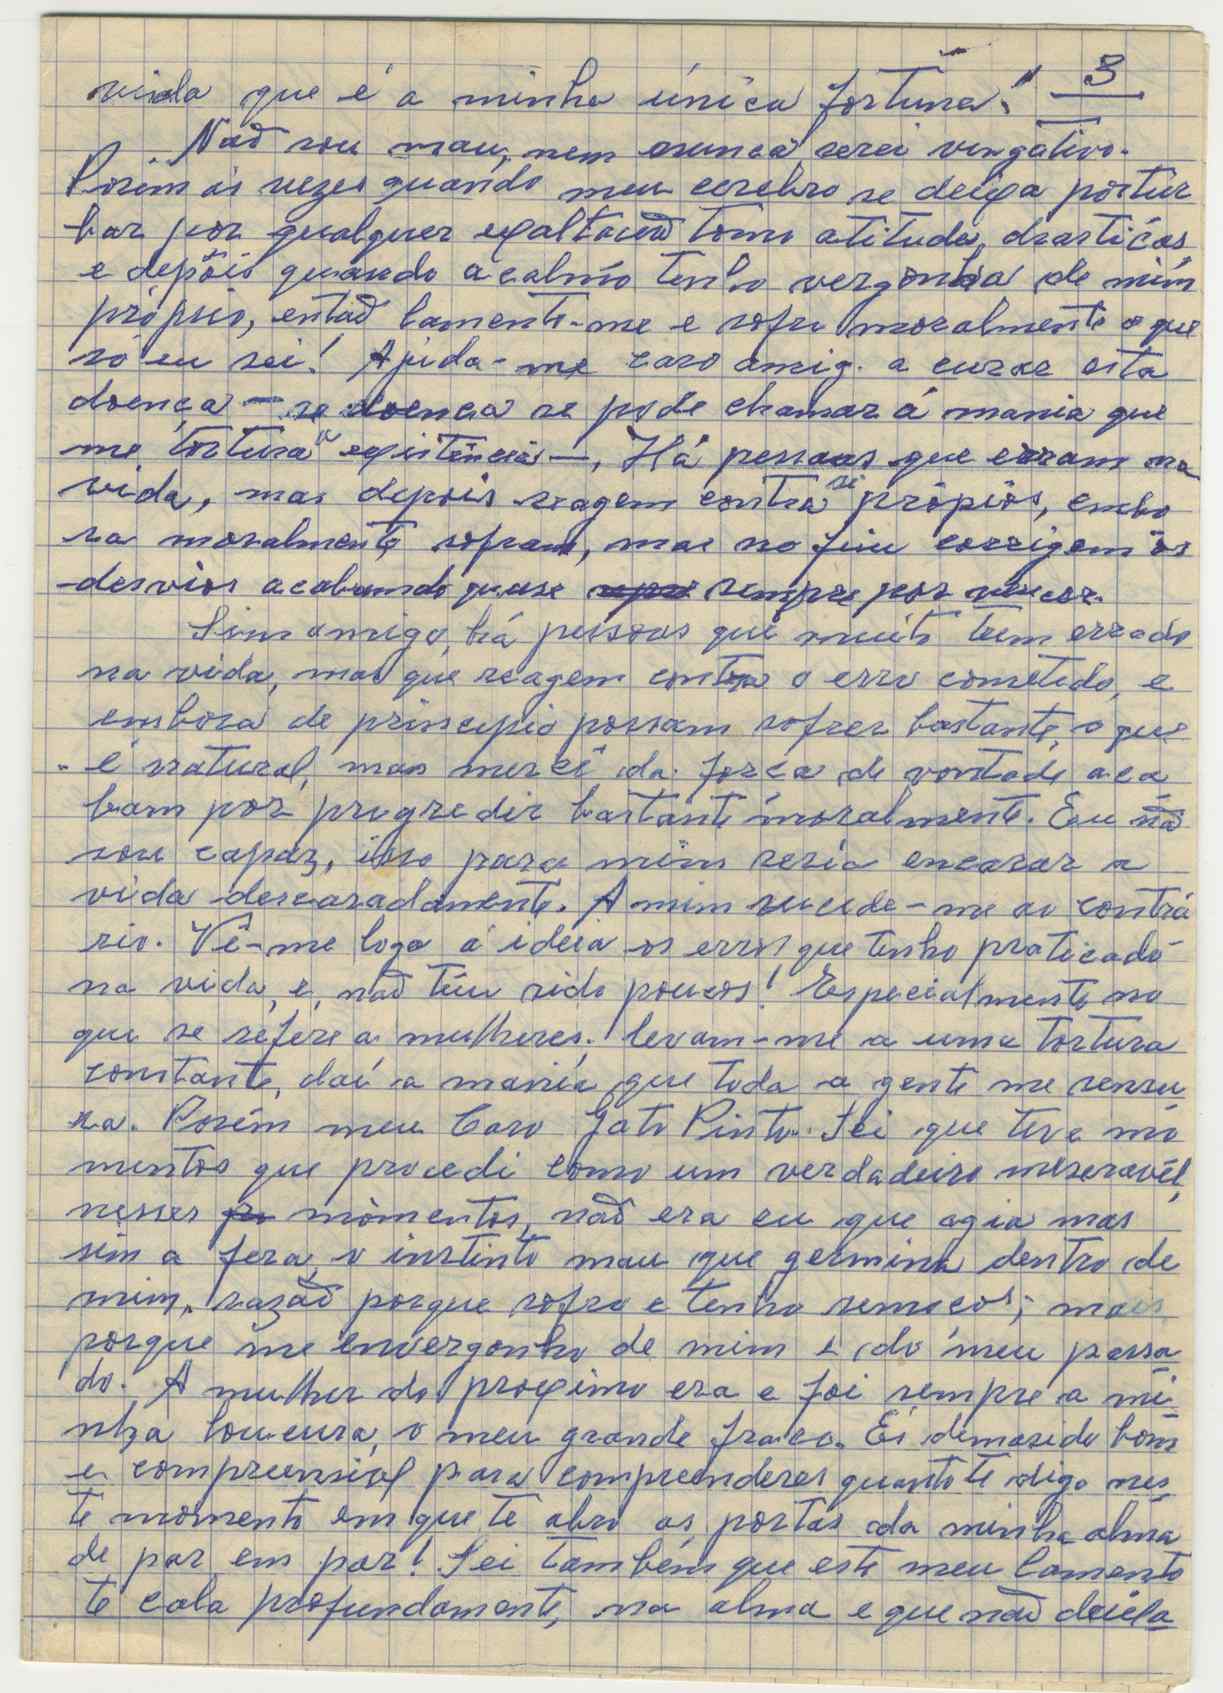 3
vida que é a minha única fortuna!
Naõ sou mau, nem nunca serei vingativo.
Porém ás vezes quando meu cerebro se deixa portur
bar por qualquer exaltacaõ tomo atitudes drasticas,
e depois quando acalmo tenho vergonha de mim
próprio, entaõ lamento-me e sofro moralmente o que
só eu sei! Ajuda-me caro amig. a curar esta
doença — se doenca se pode chamar á mania que
me tortura a existência —, Há pessoas que erram na
vida, mas depois reagem contra si própios, embo
ra moralmente sofram, mas no fim corrigem os
desvios acabando quase sempre por vencer.
Sim amigo, há pessoas que muito teem errado
na vida, mas que reagem contra o erro cometido, e
embora de principio possam sofrer bastante, o que
é natural, mas mercê da força de vontade aca
bam por progredir bastante moralmente. Eu naõ
sou capaz, isso para mim seria encarar a
vida descaradamente. A mim sucede-me ao contrá
rio. Vê-me logo á ideia os erros que tenho praticado
na vida, e, naõ têm sido poucos! Especialmente no
que se refere a mulheres. levam-me a uma tortura
constante, daí a mania que toda a gente me censu
ra. Porém meu Caro Gato Pinto. Sei que tive mo
mentos que procedi como um verdadeiro meseravél,
nesses momentos, naõ era eu que agia mas
sim a fera, o instinto mau que germina dentro de
mim, razaõ porque sofro e tenho remocos; mais
porque me envergonho de mim e do meu passa
do. A mulher do proximo era e foi sempre a mi
nha loucura, o meu grande fraco. És demasido bom
e compreensivel para compreenderes quanto te digo nes
te momento em que te abro as portas da minha alma
de par em par! Sei também que este meu lamento
te cala profundamente, na alma e que naõ